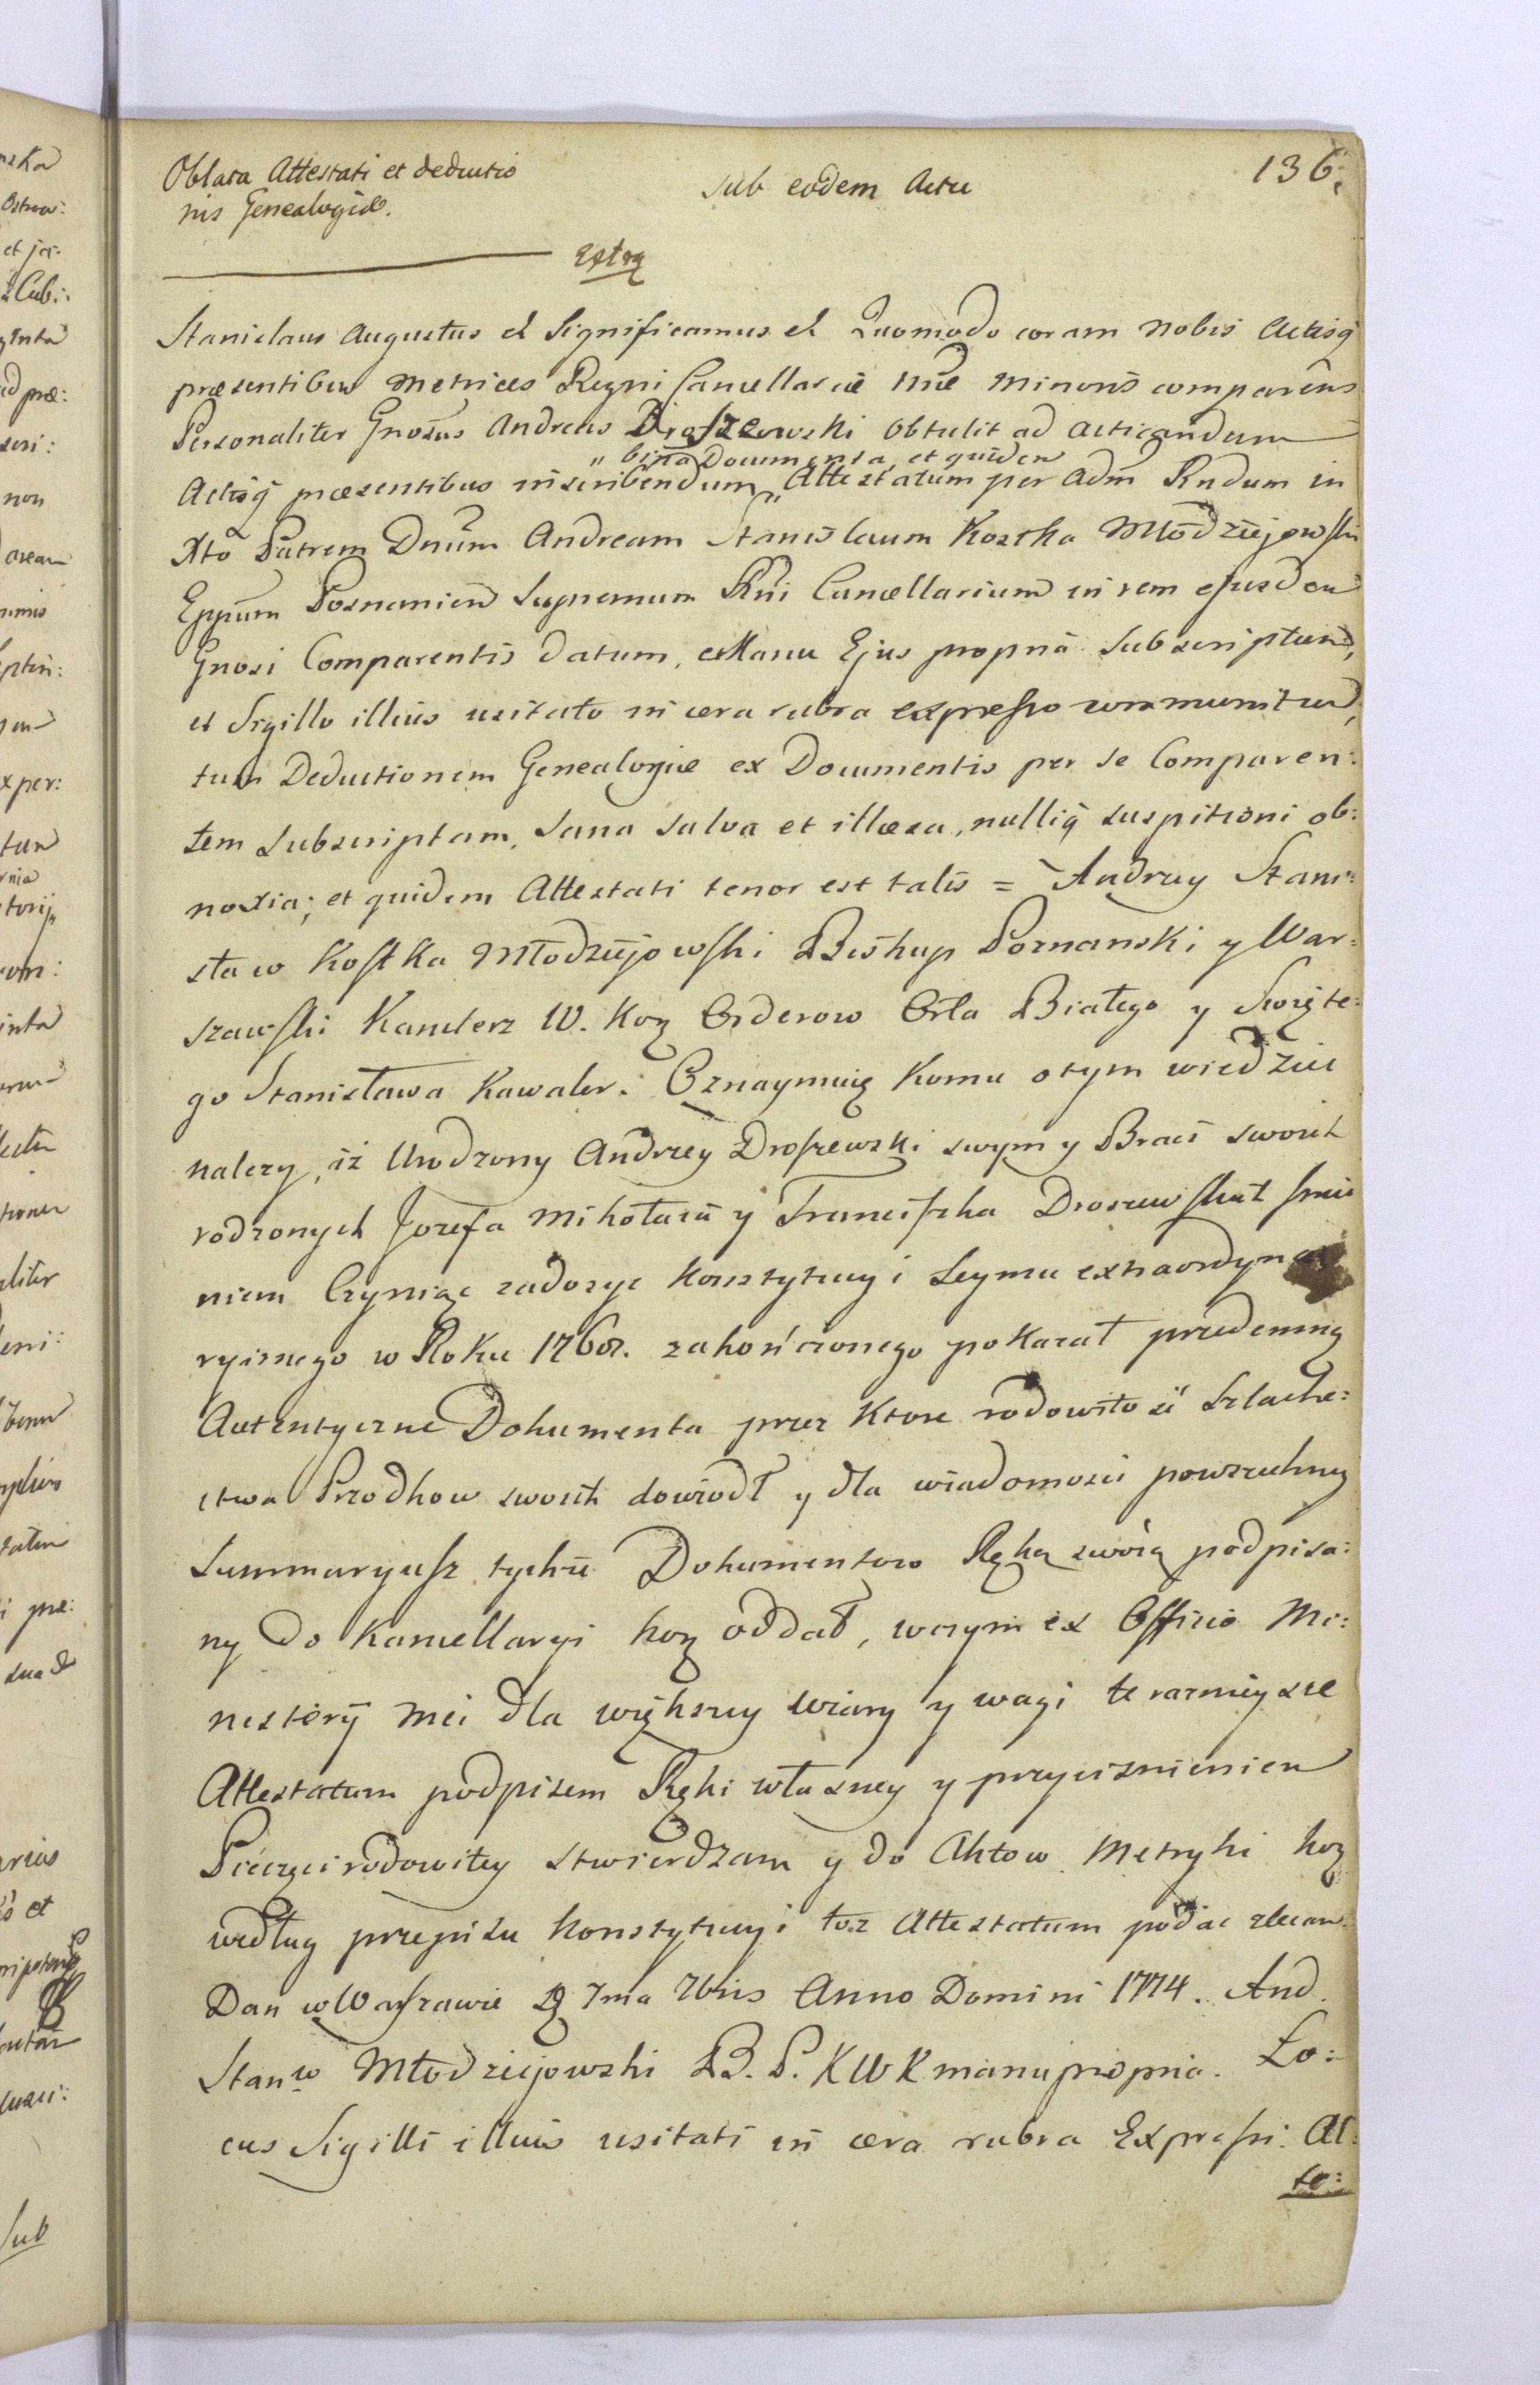 Oblata Attestati et deductio
nis Genealogiæ.
sub eodem Actu
136.
Extra
Stanislaus Augustus et Significamus et Quomodo coram nobis Actisq̃
præsentibus Metrices Regni Cancellariæ nræ minoris comparẽns
Personaliter Gnosus Andreas Droszewski obtulit ad acticandum
„ bina Documenta, et quidem
Actisq̃ præsentibus inscribendum „ Attestatum per Adm̃ Rndum in
Xto Patrem Dnũm Andream Stanislaum Kostka Młodziejowski
Eppum Posnanien Supremum Rni Cancellarium in rem ejusdem
Gnosi Comparentis datum, Manu Ejus propria subscriptum,
et Sigillo illius usitato in cera rubra expresso communitum,
tum Deductionem Genealogiæ ex Documentis per se Comparen:
tem subscriptam, sana salva et illæsa, nulliq̃ suspitioni ob:
noxia; et quidem Attestati tenor est talis = Andrzy Stani:
sław Kostka Młodziejowski Biskup Poznanski y War:
szawski Kanclerz W. Koṛ Orderow Orła Białego y Swięte:
go Stanisława Kawaler. Oznaymuię Komu o tym wiedziec
nalezy, iż Urodzony Andrzey Droszewski swym y Braci swoich
rodzonych Jozefa Mikołaia y Franciszka Droszewskich Imie
niem Czyniąc zadosyc Konstytucyi Seymu extraordyna
ryinego w Roku 1768. zakończonego pokazał przedemną
Autentyczne Dokumenta przez Ktore rodowitość Szlache:
ctwa Przodkow swoich dowiodł y dla wiadomosci powszechney
Summaryusz tychże Dokumentow Ręką swoią podpisa:
ny do Kancellaryi koṛ oddał, wczym ex Officio Mi:
nisterij mei dla większey wiary y wagi te razniejsze
Attestatum podpisem Ręki własney y przycisnieniem
Pieczęci rodowitey stwierdzam y do Aktow Metryki koṛ
według przepisu konstytucyi toz Attestatum podac zlecam.
Dan w Warszawie D. 7ma 7bris Anno Domini 1774. And.
Stanw Młodziejowski B. P. K W K manu propria. Lo:
cus Sigilli illius usitati in cera rubra Expressi. Al:
te: